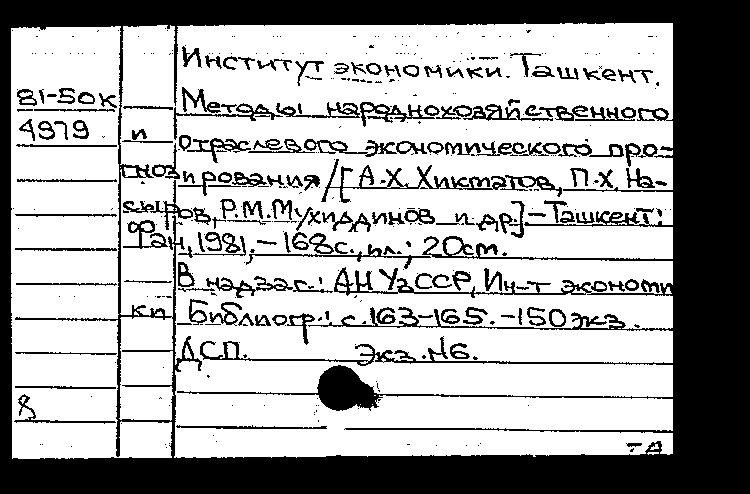 Институт экономики. Ташкент.
81-50к Методы народнохозяйственного
4979 и отраслевого экономического про-
гнозирования /[А.Х. Хикматов, П.Х. На-
сыров, Р.М. Мухиддинов и др.] – Ташкент:
Фан, 1981, – 168 с., ил.; 20 ст.
В надзаг.: АН УзССР, Ин-т экономи
ки Библиогр.: с. 163–165. – 150 экз.
ДСП. Экз. №6.
8
ТА